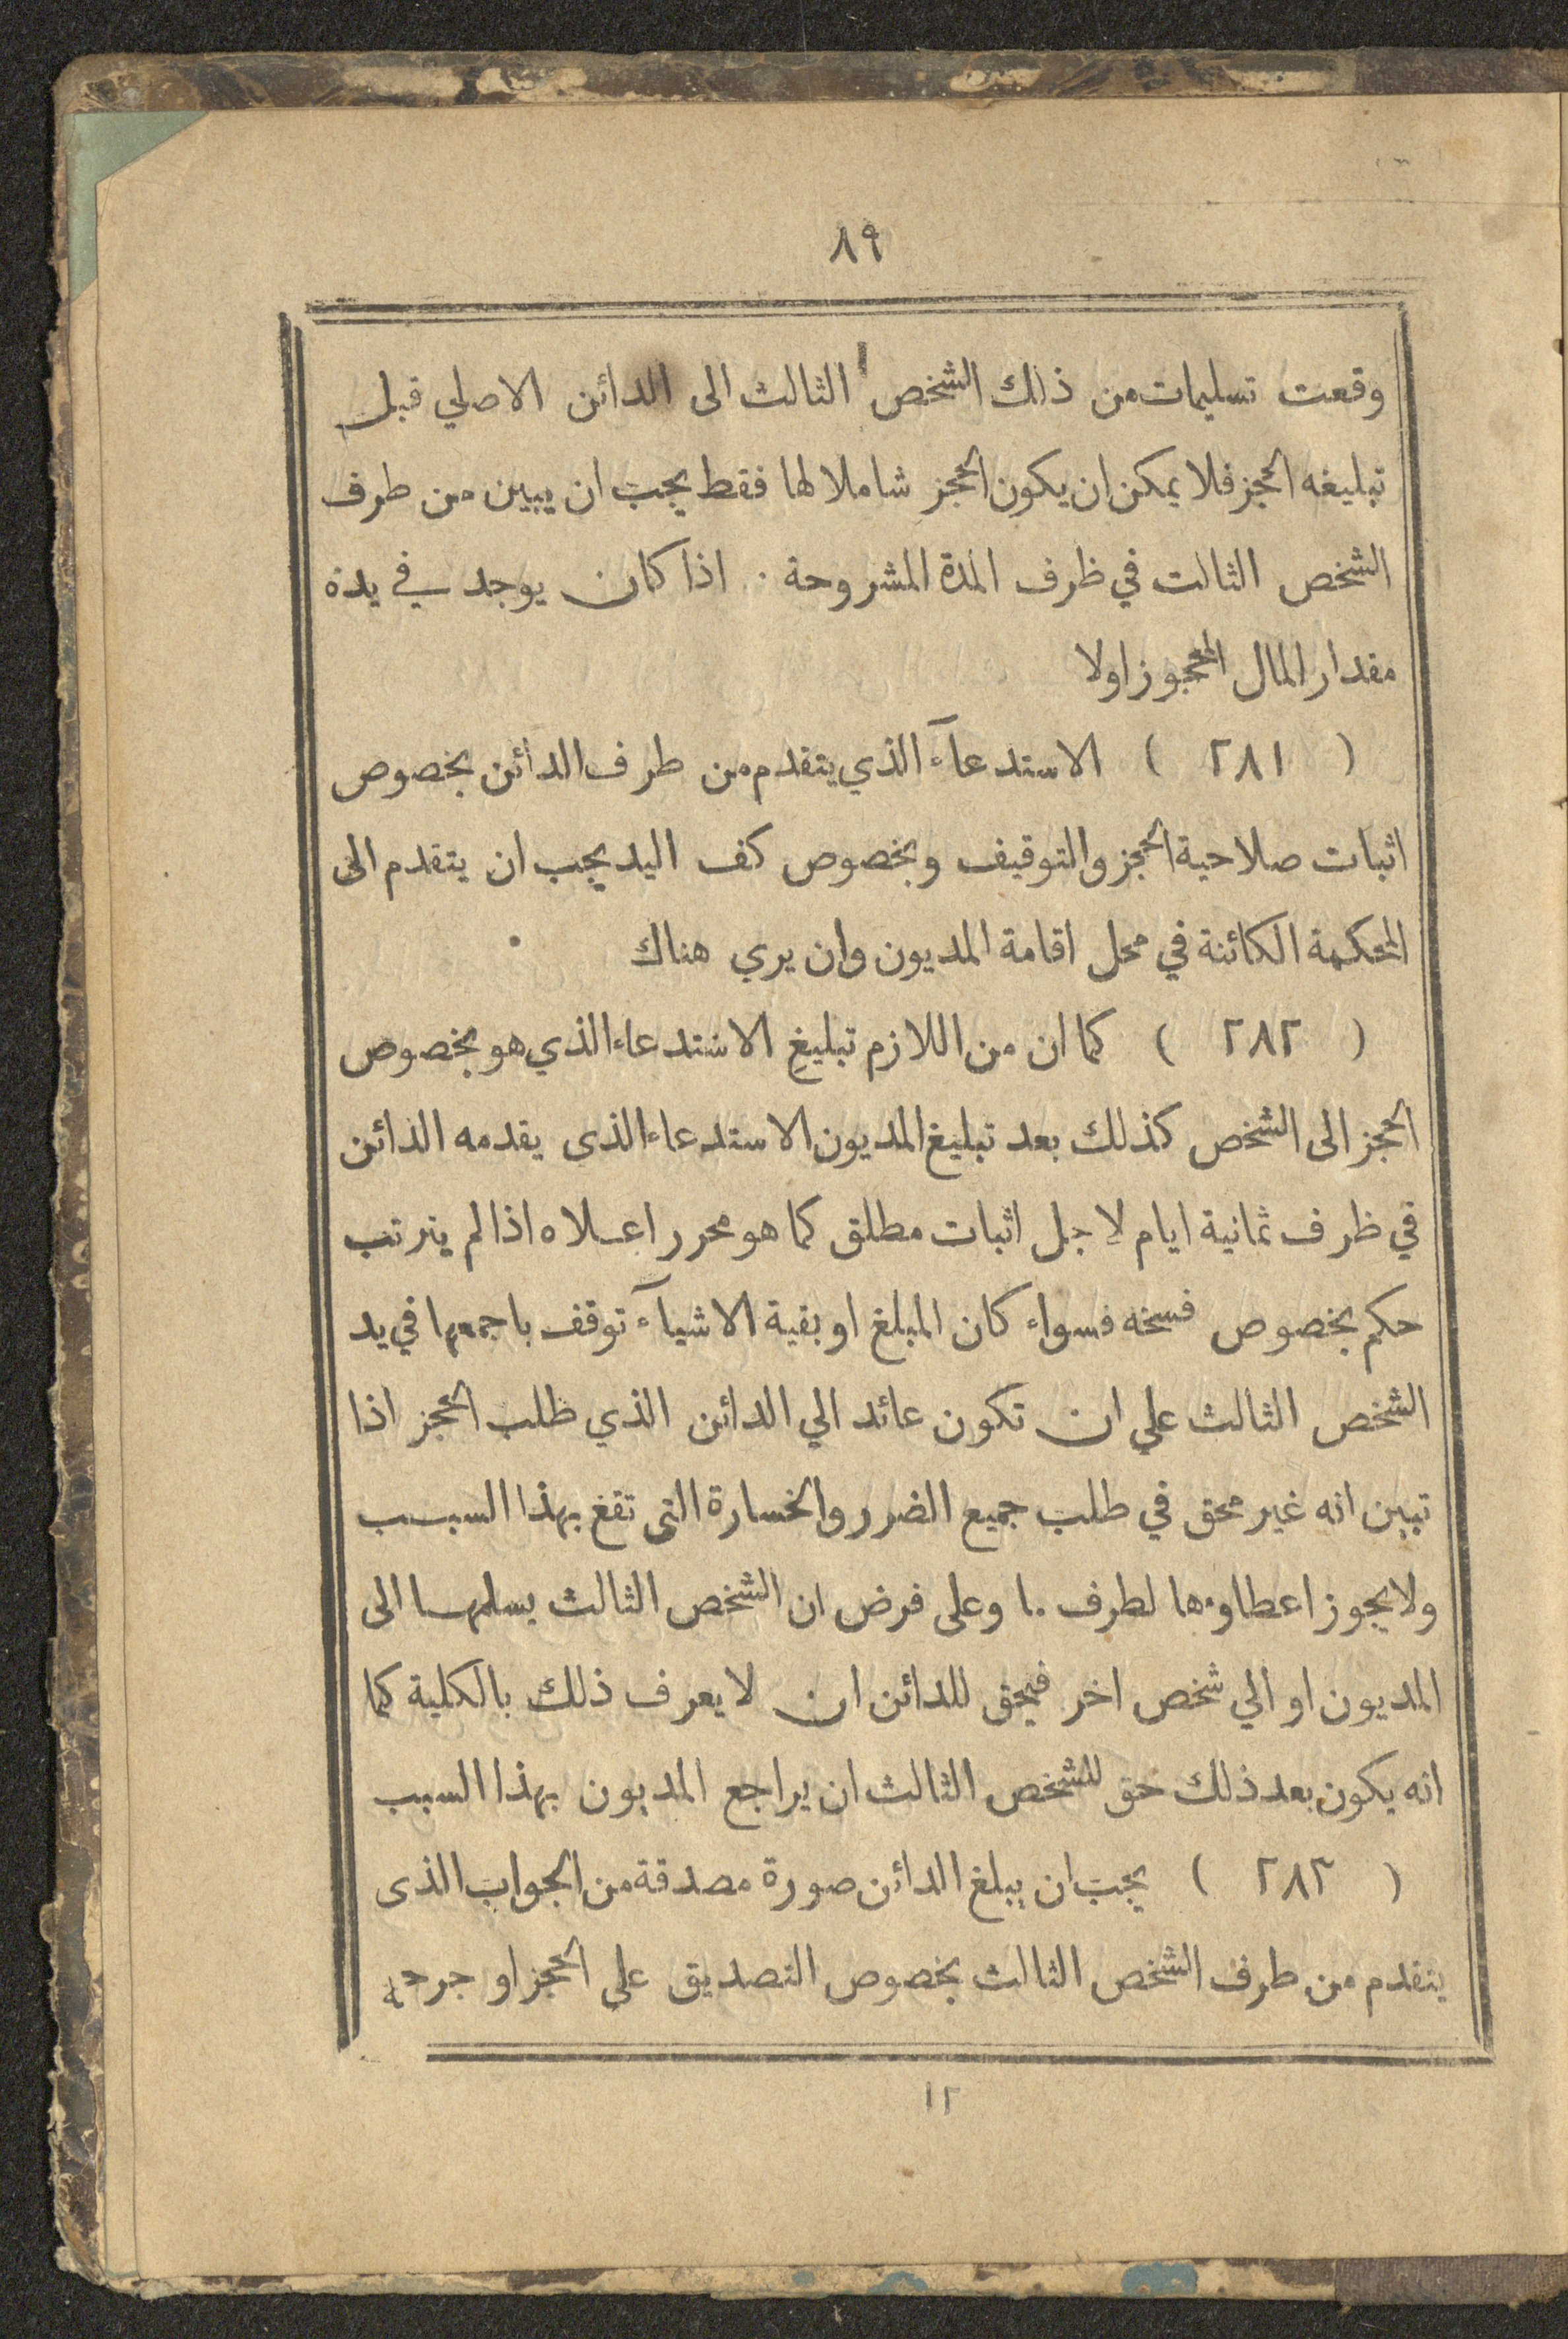 ٨٩
وقعت تسليمات من ذلك الشخص الثالث الى الدائن الاصلي قبل
تبليغه الحجز فلا يمكن ان يكون الحجز شاملا لها فقط يجب ان يبين من طرف
الشخص الثالث في ظرف المدة المشروحة . اذا كان يوجد في يده
مقدار المال المحجوز اولا
( ٢٨١ ) الاستدعآء الذي يتقدم من طرف الدائن بخصوص
اثبات صلاحية الحجز والتوقيف وبخصوص كف اليد يجب ان يتقدم الى
المحكمة الكائنة في محل اقامة المديون وان يري هناك
( ٢٨٢ ) كما ان من اللازم تبليغ الاستدعاء الذي هو بخصوص
الحجز الى الشخص كذلك بعد تبليغ المديون الاستدعاء الذى يقدمه الدائن
في ظرف ثمانية ايام لاجل اثبات مطلق كما هو محرر اعلاه اذا لم يترتب
حكم بخصوص فسخه فسواء كان المبلغ او بقية الاشيآء توقف باجمعها في يد
الشخص الثالث علي ان تكون عائد الي الدائن الذي طلب الحجز اذا
تبين انه غير محق في طلب جميع الضرر والخسارة التى تقع بهذا السبب
ولا يجوز اعطاوءها لطرف ما وعلى فرض ان الشخص الثالث يسلمها الى
المديون او الي شخص اخر فيحق للدائن ان لا يعرف ذلك بالكلية كما
انه يكون بعد ذلك حق للشخص الثالث ان يراجع المديون بهذا السبب
( ٢٨٣ ) يجب ان يبلغ الدائن صورة مصدقة من الجواب الذى
يتقدم من طرف الشخص الثالث بخصوص التصديق على الحجز او جرحه
١٢